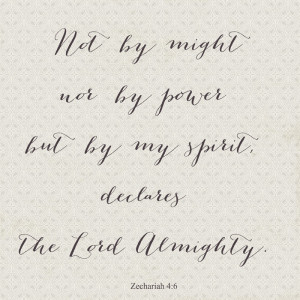 Not by might
nor by power
but by my spirit,
declares
the Lord Almighty.
Zechariah 4:6